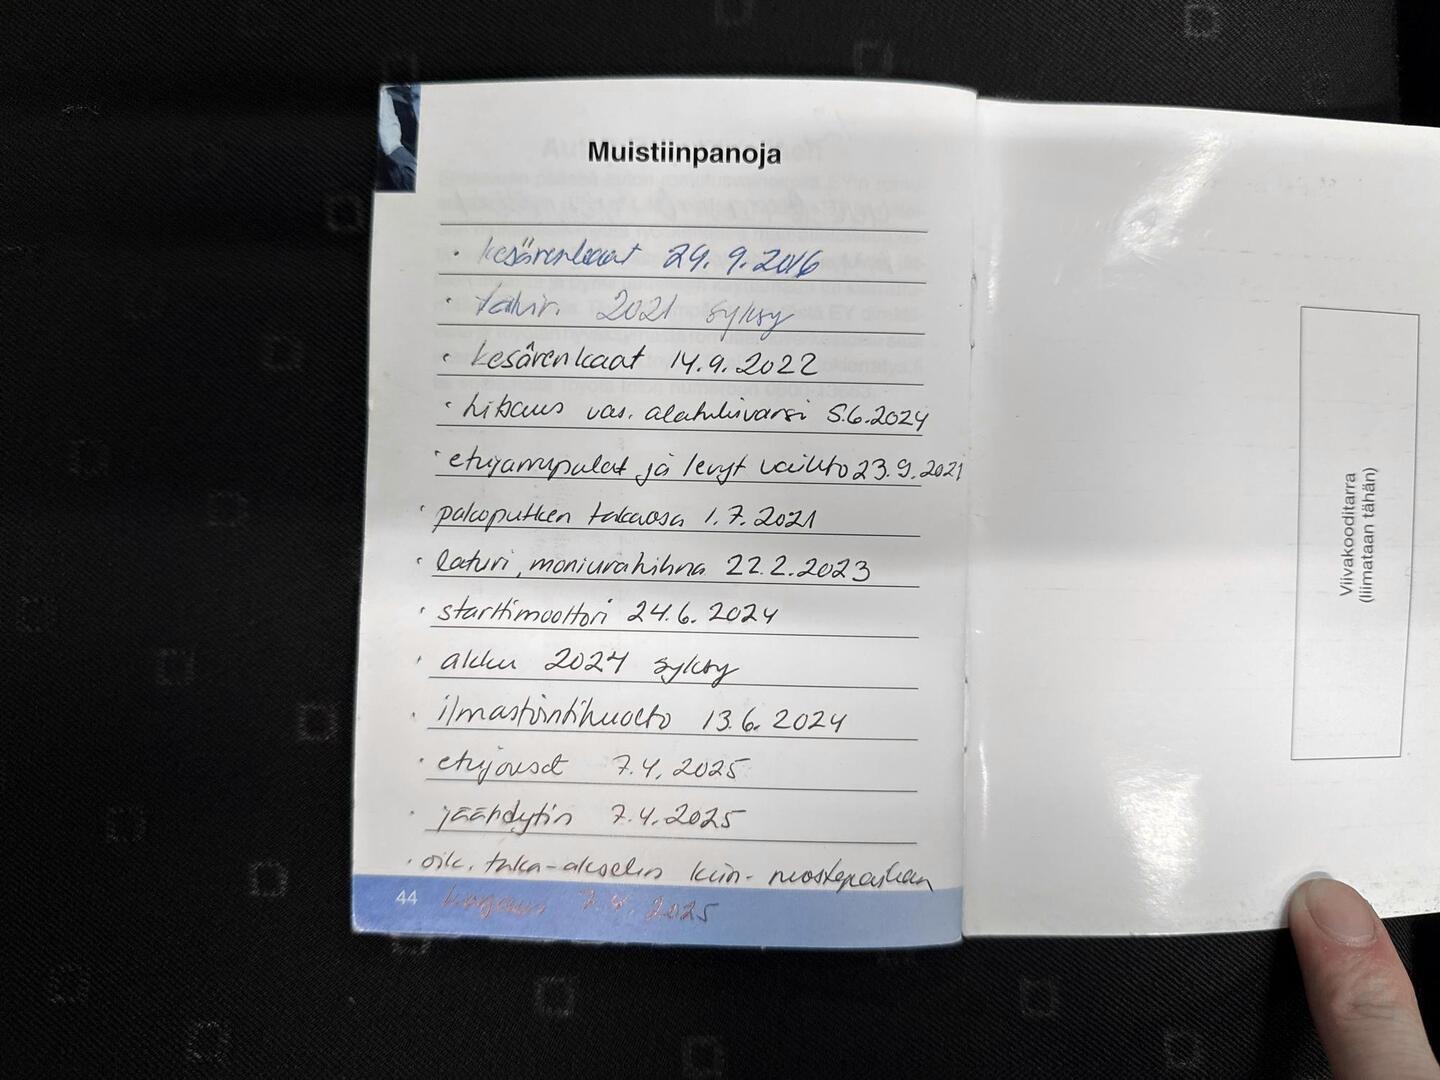 Muistiinpanoja
· kesärenkaat 29.9.2016
2021 syksy
· kesärenkaat 14.9.2022
· hitsaus vas. alatukivarsi 5.6.2024
· etujarrupalat ja levyt vaihto 23.9.2021
· pakoputken takaosa 1.7.2021
· laturi, moniurahihna 22.2.2023
· starttimoottori 24.6.2024
· akku 2024 syksy
· ilmastointihuolto 13.6.2024
· etujouset 7.4.2025
· jäähdytin 7.4.2025
· oik. taka-akselin kiin- nostopaikan
44 korjaus 7.4.2025
Viivakooditarra
(liimataan tähän)